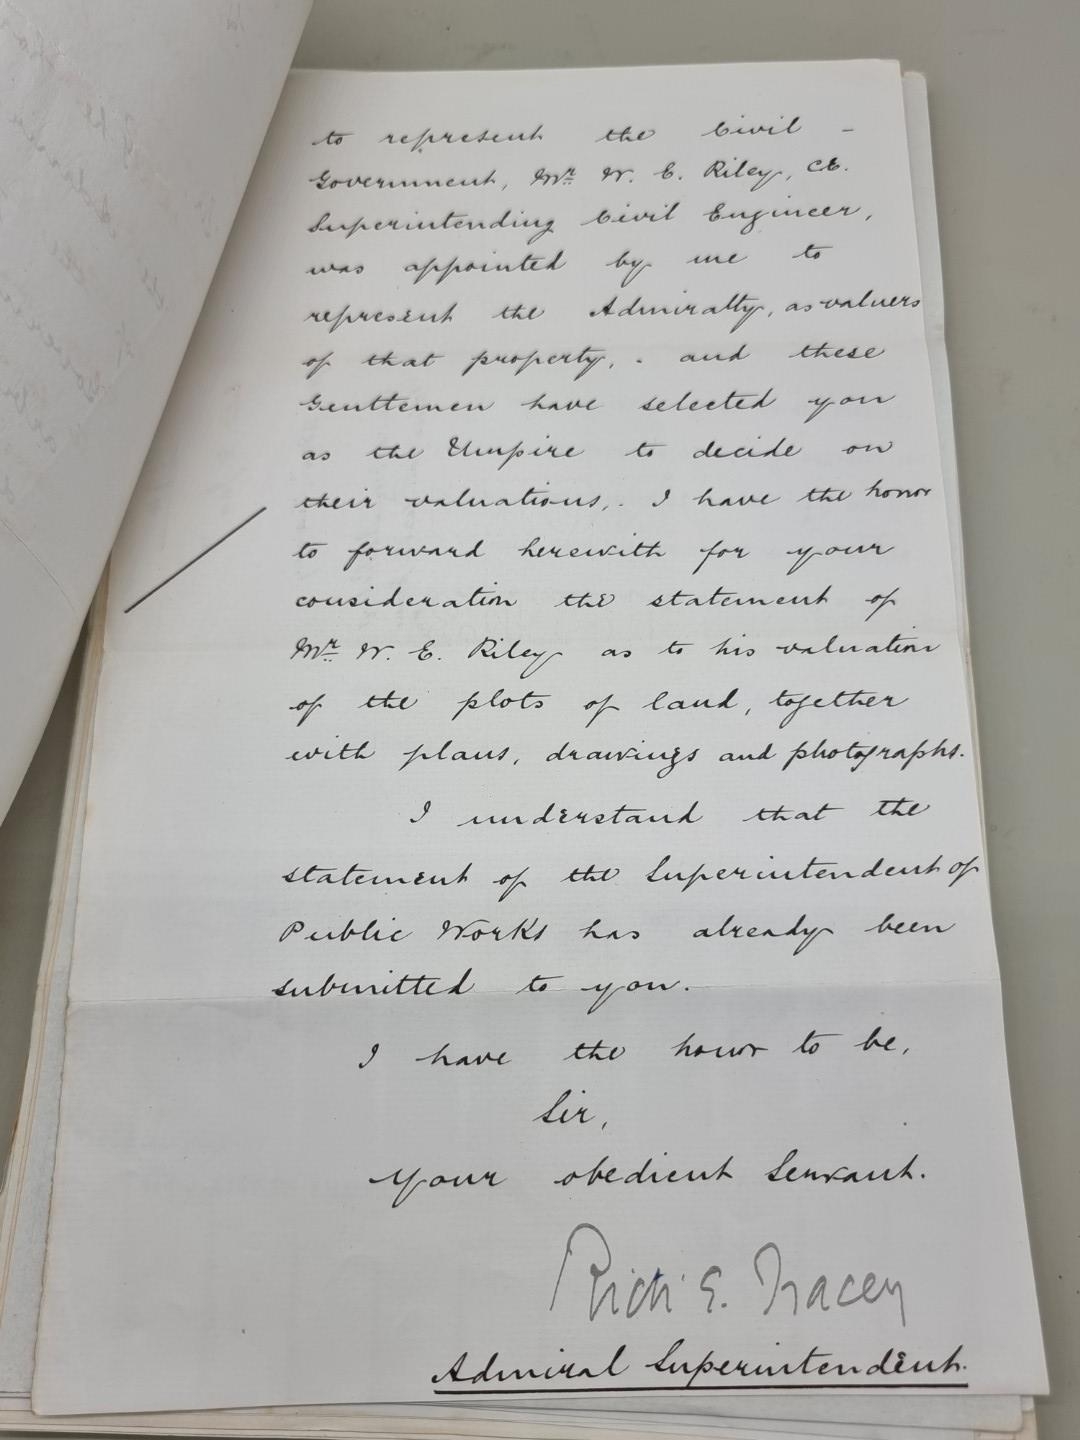 to represent the Civil -
Government, Mr W. E. Riley, C.E.
Superintending Civil Engineer,
was appointed by me to
represent the Admiralty, as valuers
of that property, . and these
Gentlemen have selected you
as the Umpire to decide on
their valuations, . I have the honor
to forward herewith for your
consideration the statement of
Mr W. E. Riley as to his valuation
of the plots of land, together
with plans, drawings and photographs.
I understand that the
statement of the Superintendent of
Public Works has already been
submitted to you.
I have the honor to be,
Sir,
Your obedient Servant.
Richd E. Tracey
Admiral Superintendent.